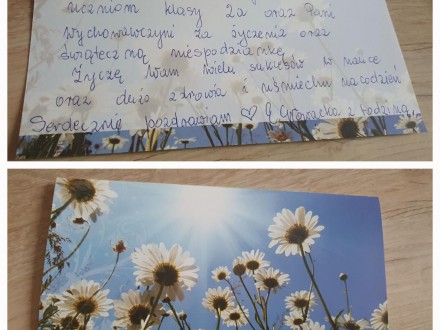 uczniom klasy 2a oraz Pani
Wychowawczyni za życzenia oraz
świąteczną niespodziankę.
Życzę Wam wielu sukcesów w nauce
oraz dużo zdrowia i uśmiechu na codzień
Serdecznie pozdrawiam ♡ z rodziną,